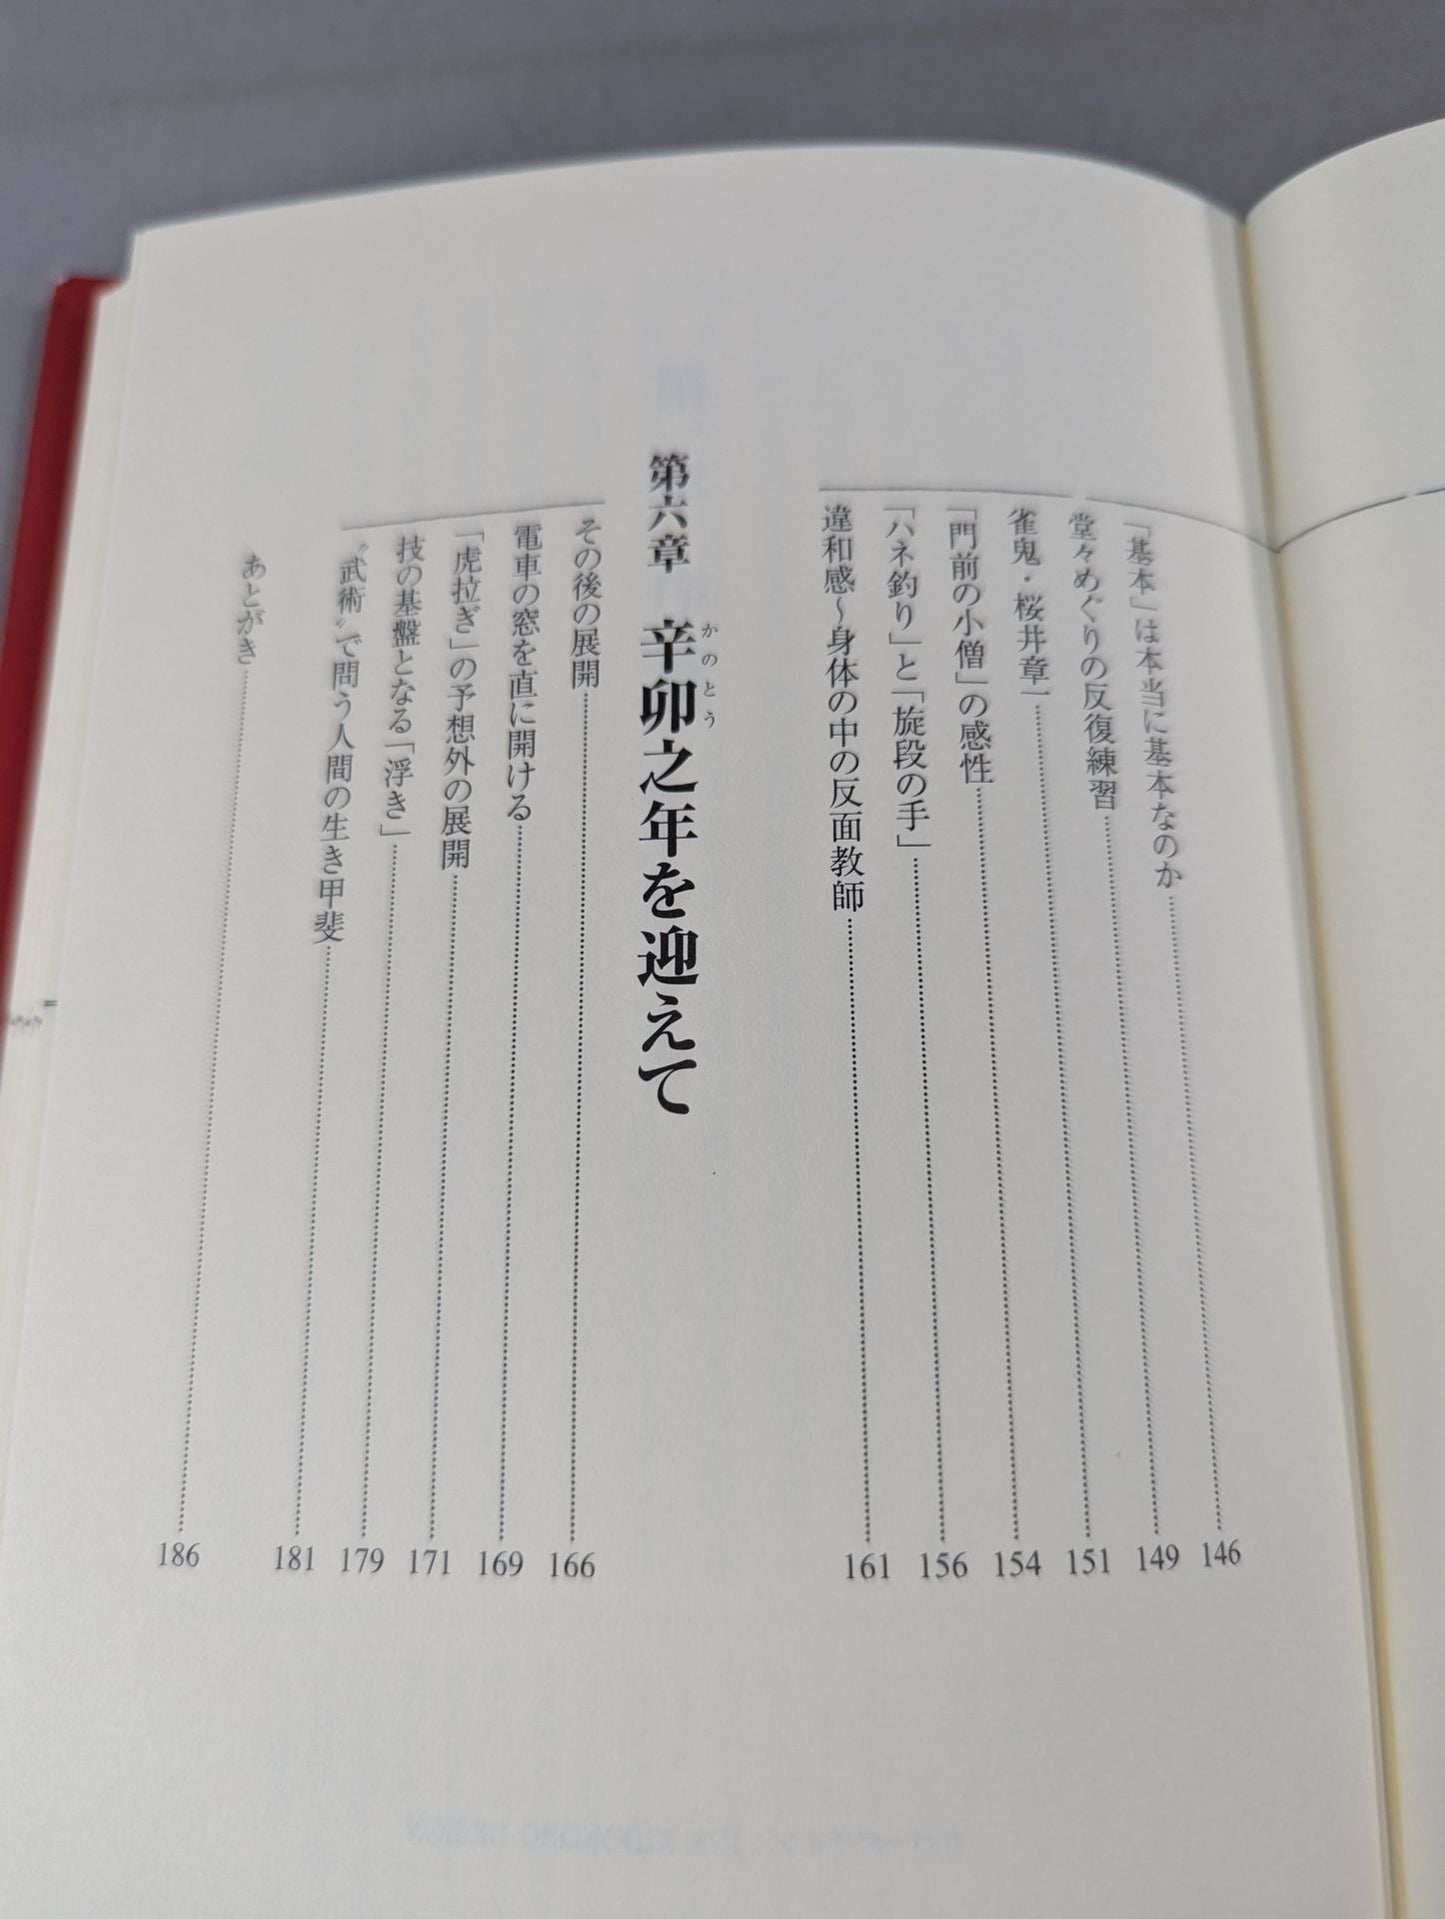 「基本」は本当に基本なのか 146
堂々めぐりの反復練習 149
雀鬼・桜井章一 151
「門前の小僧」の感性 154
「ハネ釣り」と「旋段の手」 156
違和感〜身体の中の反面教師 161
第六章 辛卯之年を迎えて
かのとう
その後の展開 166
電車の窓を直に開ける 169
「虎拉ぎ」の予想外の展開 171
技の基盤となる「浮き」 179
〝武術〟で問う人間の生き甲斐 181
あとがき 186